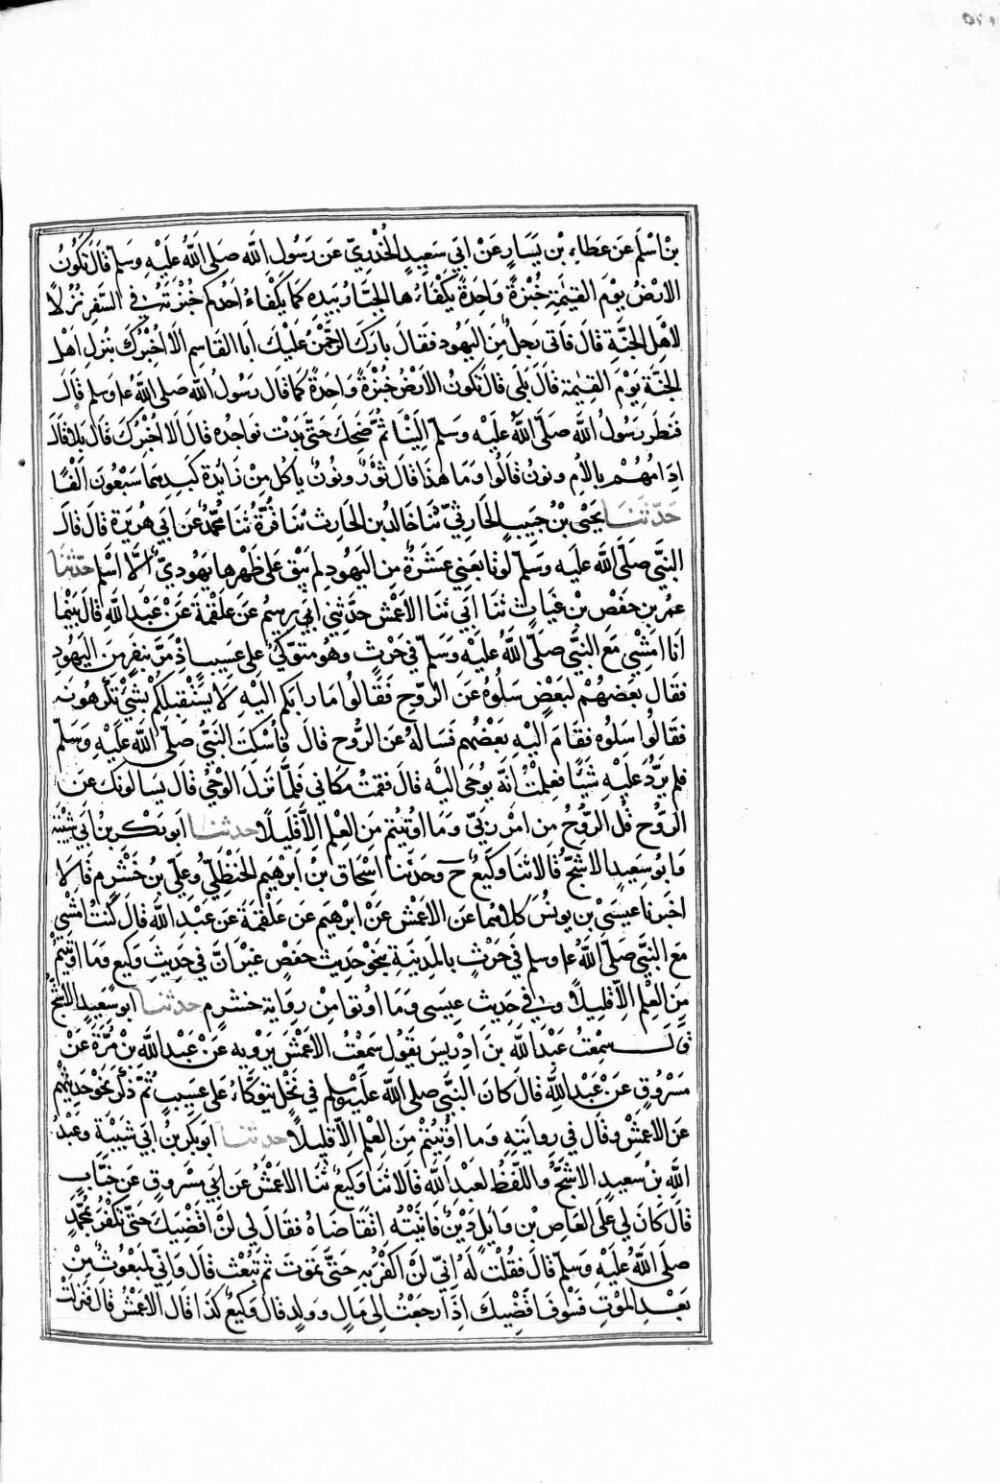 بن اسلم عن عطاء بن يسار عن ابي سعيد الخدري عن رسول الله صلى الله عليه وسلم قال تكون
الارض يوم القيمة خبزة واحدة يكفاءها الجبار بيده كما يكفاء احدكم خبزته في السفر نزلا
لاهل الجنة قال فاتى رجل من اليهود فقال بارك الرحمن عليك ابا القاسم الا اخبرك بنزل اهل
الجنة يوم القيمة قال بلى قال تكون الارض خبزة واحدة كما قال رسول الله صلى الله علم وسلم قال
فنظر رسول الله صلى الله عليه وسلم الينا ثم ضحك حتى بدت نواجده قال الا اخبرك قال بلا قال
ادامهم بالام ونون قالوا وما هذا قال ثور ونون ياكل من زائدة كبدهما سبعون الفا
حدثنا يحيى بن حبيب الحارثي ثنا خالد بن الحارث ثنا قرة ثنا محمد عن ابي هريرة قال قال
النبي صلى الله عليه وسلم لو تابعني عشرة من اليهود لم يبق على ظهرها يهودي الا اسلم حدثنا
عمر بن حفص بن غياث ثنا ابي ثنا الاعمش حدثني ابرهيم عن علقمة عن عبد الله قال بينما
انا امشي مع النبي صلى الله عليه وسلم في حرث وهو متوكئ على عسيب اذ مر بنفر من اليهود
فقال بعضهم لبعض سلوه عن الروح فقالوا ما رابكم اليه لا يستقبلكم بشئ تكرهونه
فقالوا سلوه فقام اليه بعضهم فساله عن الروح قال فاسكت النبي صلى الله عليه وسلم
فلم يرد عليه شيا فعلمت انه يوحى اليه قال فقمت مكاني فلما نزل الوحي قال يسالونك عن
الروح قل الروح من امر ربي وما اوتيتم من العلم الا قليلا حدثنا ابو بكر بن ابي شيبة
وابو سعيد الاشج قالا ثنا وكيع ح وحدثنا اسحاق بن ابرهيم الحنظلي وعلي بن خشرم قالا
اخبرنا عيسى بن يونس كلاهما عن الاعمش عن ابرهيم عن علقمة عن عبد الله قال كنت امشي
مع النبي صلى الله علم وسلم في حرث بالمدينة بنحو حديث حفص غير ان في حديث وكيع وما اوتيتم
من العلم الا قليلا وفي حديث عيسى وما اوتوا من رواية خشرم حدثنا ابو سعيد الاشج
قال سمعت عبد الله بن ادريس يقول سمعت الاعمش يرويه عن عبد الله بن مرة عن
مسروق عن عبد الله قال كان النبي صلى الله عليه وسلم في نخل يتوكاء على عسيب ثم ذكر نحو حديثهم
عن الاعمش وقال في روايته وما اوتيتم من العلم الا قليلا حدثنا ابو بكر بن ابي شيبة وعبد
الله بن سعيد الاشج واللفظ لعبد الله قالا ثنا وكيع ثنا الاعمش عن ابي مسروق عن خباب
قال كان لي على العاص بن وايل دين فاتيته اتقاضاه فقال لي لن اقضيك حتى تكفر بمحمد
صلى الله عليه وسلم قال فقلت له اني لن اكفر به حتى تموت ثم تبعث قال واني لمبعوث من
بعد الموت فسوف اقضيك اذا رجعت الى مال وولد قال وكيع كذا قال الاعمش قال فنزلت